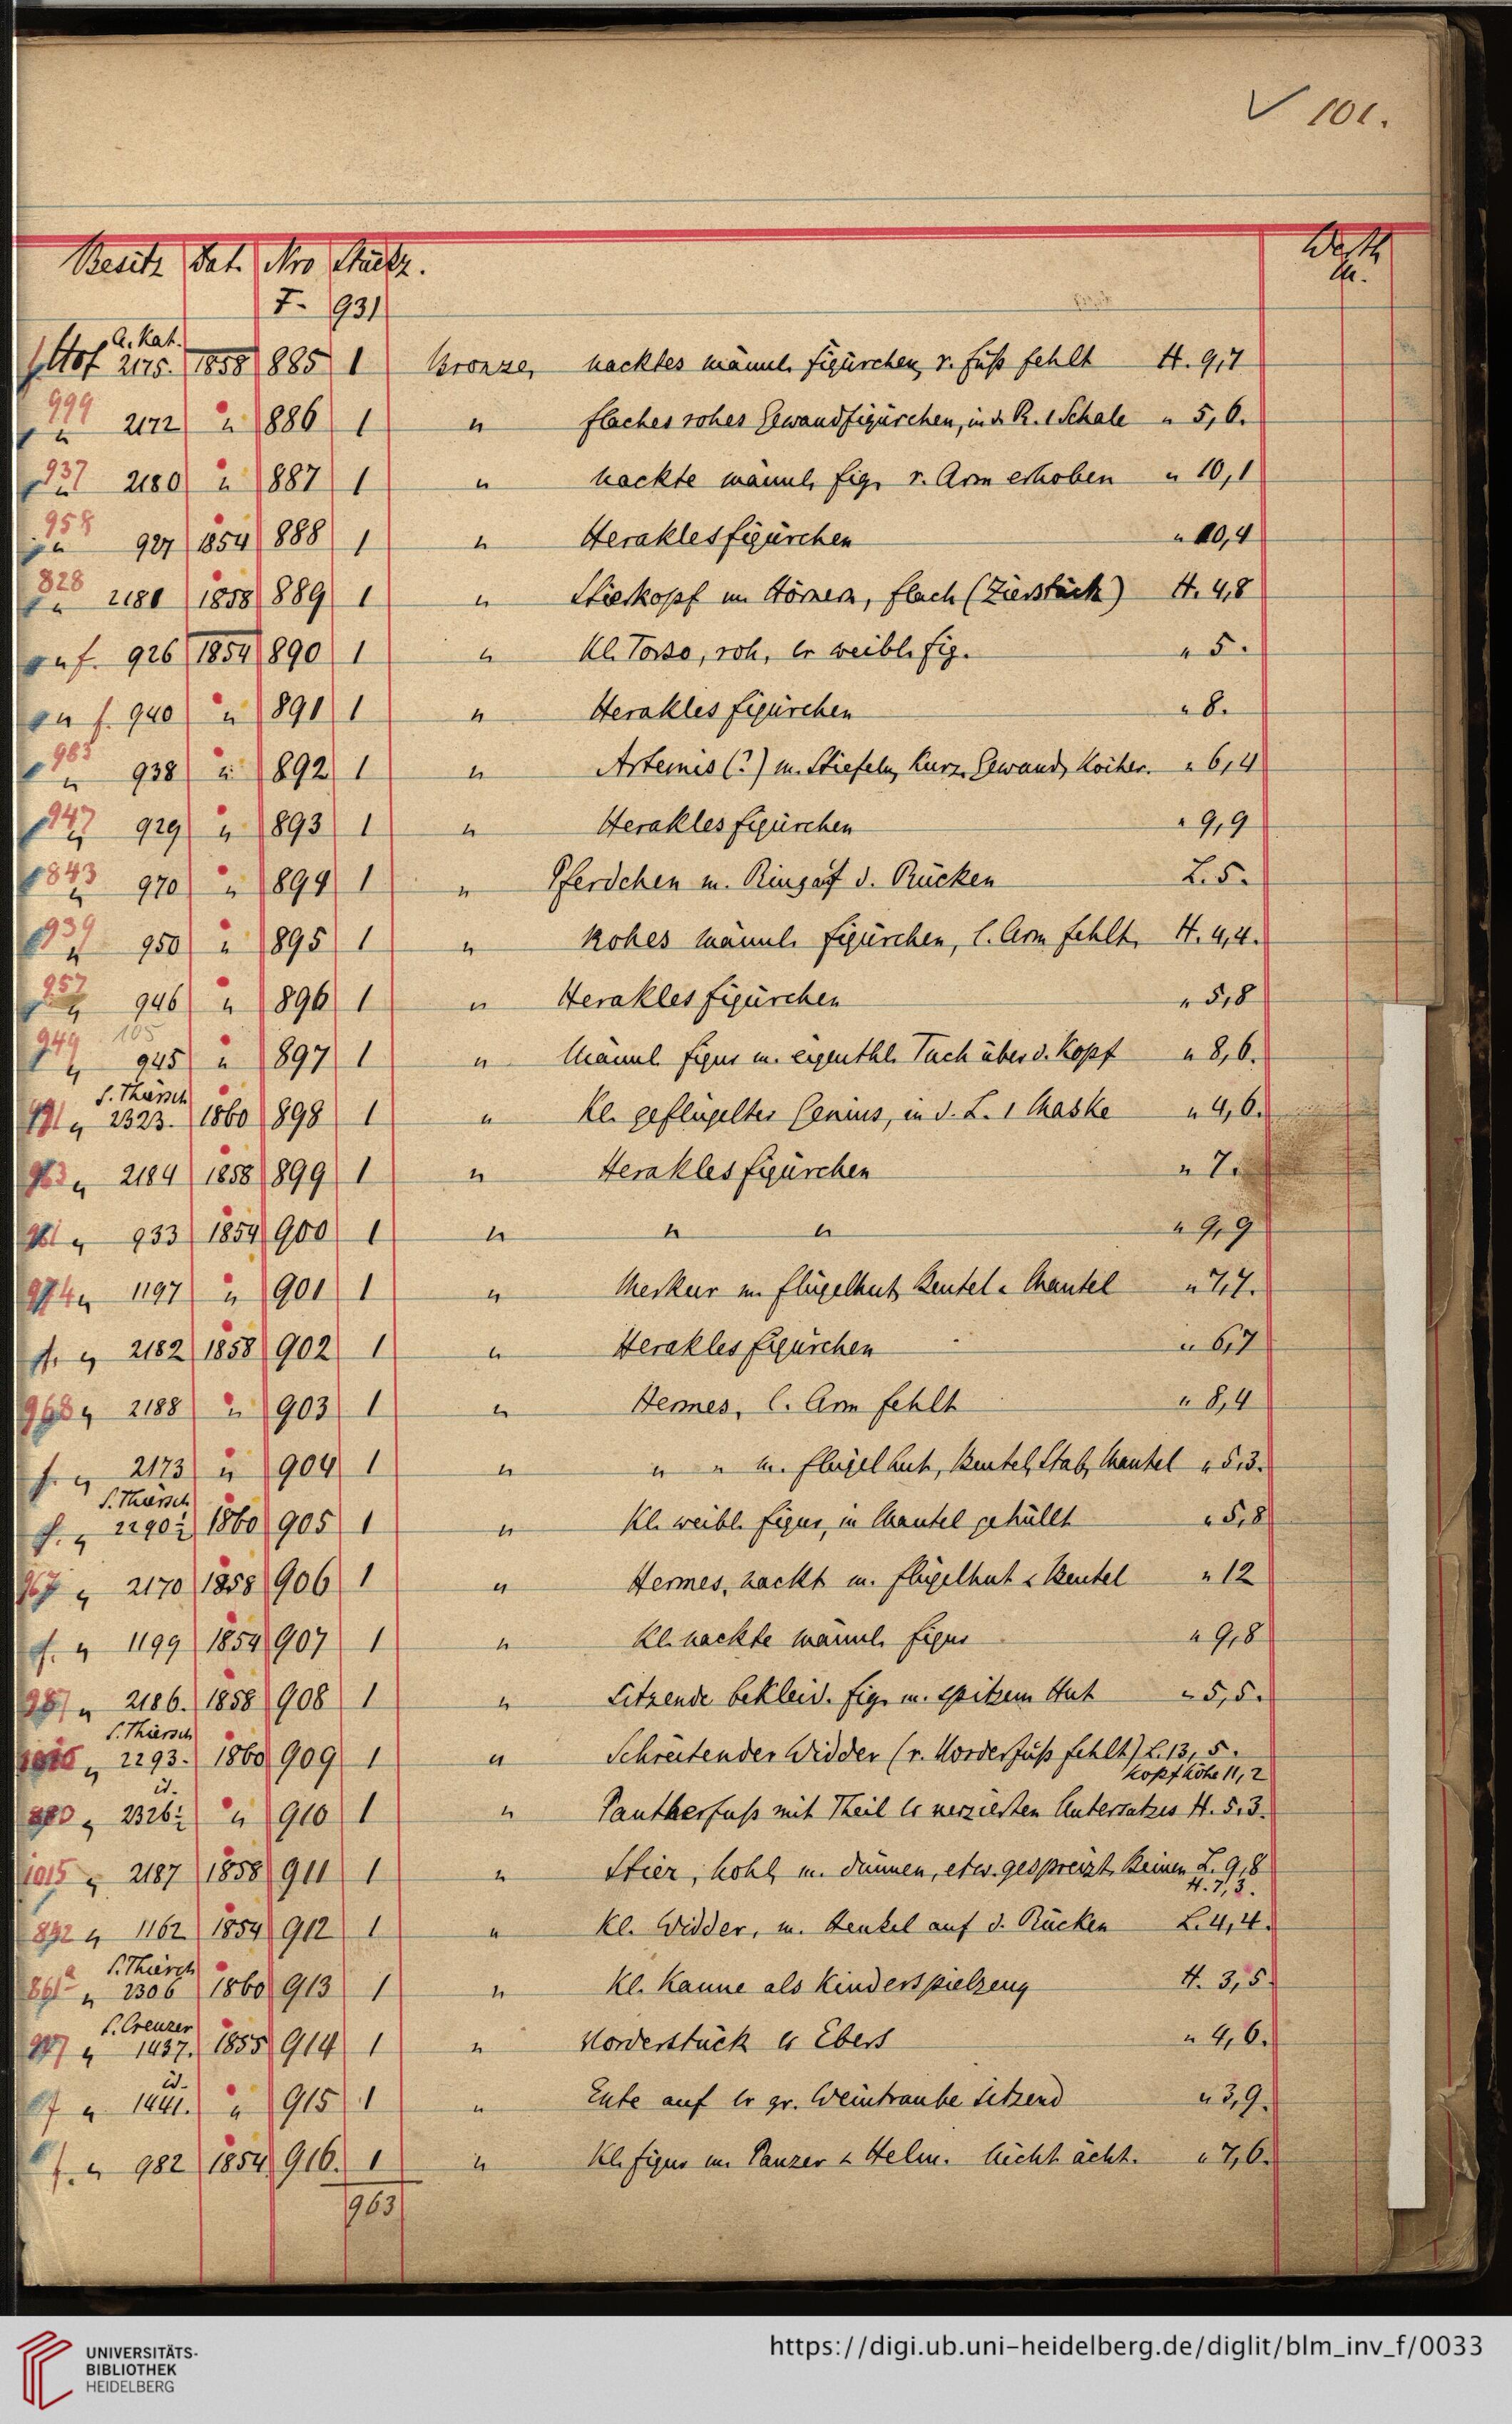 ✓ 101.
Besitz Dat. Nro Stückz. Werth
M.
F. 931
A. Kat.
Hof 2175. 1858 885 1 Bronze, nacktes männl. Figürchen, r. Fuß fehlt H. 9,7
999 " 2172 " 886 1 " flaches rohes Gewandfigürchen, in d. R. 1 Schale " 5,6.
937 " 2180 " 887 1 " nackte männl. Fig. r. Arm erhoben " 10,1
958 " 927 1854 888 1 " Heraklesfigürchen " 10,4
828 " 2181 1858 889 1 " Stierkopf m. Hörnern, flach (Zierstück) H. 4,8
" f. 926 1854 890 1 " Kl. Torso, roh, er weibl. Fig. " 5.
" f. 940 " 891 1 " Heraklesfigürchen " 8.
" 938 " 892 1 " Artemis (?) m. Stiefeln, kurz. Gewand, Köcher. " 6,4
947 " 929 " 893 1 " Heraklesfigürchen " 9,9
843 " 970 " 894 1 " Pferdchen m. Ring auf d. Rücken L. 5.
939 " 950 " 895 1 " Rohes männl. Figürchen, l. Arm fehlt, H. 4,4.
957 " 946 " 896 1 " Heraklesfigürchen " 5,8
949 105
" 945 " 897 1 " Männl. Figur m. eigenthl. Tuch über d. Kopf " 8,6.
S. Thiersch
" 2323. 1860 898 1 " Kl. geflügelter Genius, in d. L. 1 Maske " 4,6.
" 2184 1858 899 1 " Heraklesfigürchen " 7.
" 933 1854 900 1 " " " " 9,9
974 " 1197 " 901 1 " Merkur m. Flügelhut, Beutel u. Mantel " 7,7.
f. " 2182 1858 902 1 " Heraklesfigürchen " 6,7
968 " 2188 " 903 1 " Hermes, l. Arm fehlt " 8,4
f. " 2173 " 904 1 " " " m. Flügelhut, Beutel, Stab, Mantel " 5,3.
S. Thiersch
f. " 2290 1860 905 1 " Kl. weibl. Figur, in Mantel gehüllt " 5,8
967 " 2170 1858 906 1 " Hermes, nackt m. Flügelhut u. Beutel " 12
f. " 1199 1854 907 1 " Kl. nackte männl. Figur " 9,8
987 " 2186. 1858 908 1 " Sitzende bekleid. Fig. m. spitzem Hut " 5,5.
S. Thiersch
" 2293. 1860 909 1 " Schreitender Widder (r. Vorderfuß fehlt) L. 13,5.
Kopfhöhe 11,2
id.
" 2326 " 910 1 " Pantherfuß mit Theil es verzierten Untersatzes H. 5,3.
1015 " 2187 1858 911 1 " Stier, hohl, m. dünnen, etw. gespreizt. Beinen L. 9,8
H. 7,3.
892 " 1162 1854 912 1 " Kl. Widder, m. Henkel auf d. Rücken L. 4,4.
S. Thiersch
861a " 2306 1860 913 1 " Kl. Kanne als Kinderspielzeug H. 3,5
S. Creuzer
" 1437. 1855 914 1 " Vorderstück es Ebers " 4,6.
id.
f " 1441. " 915 1 " Ente auf er gr. Weintraube sitzend " 3,9.
f. " 982 1854 916. 1 " Kl. Figur m. Panzer u. Helm. Nicht ächt. " 7,6.
963
UNIVERSITÄTS-
BIBLIOTHEK
HEIDELBERG
https://digi.ub.uni-heidelberg.de/diglit/blm_inv_f/0033